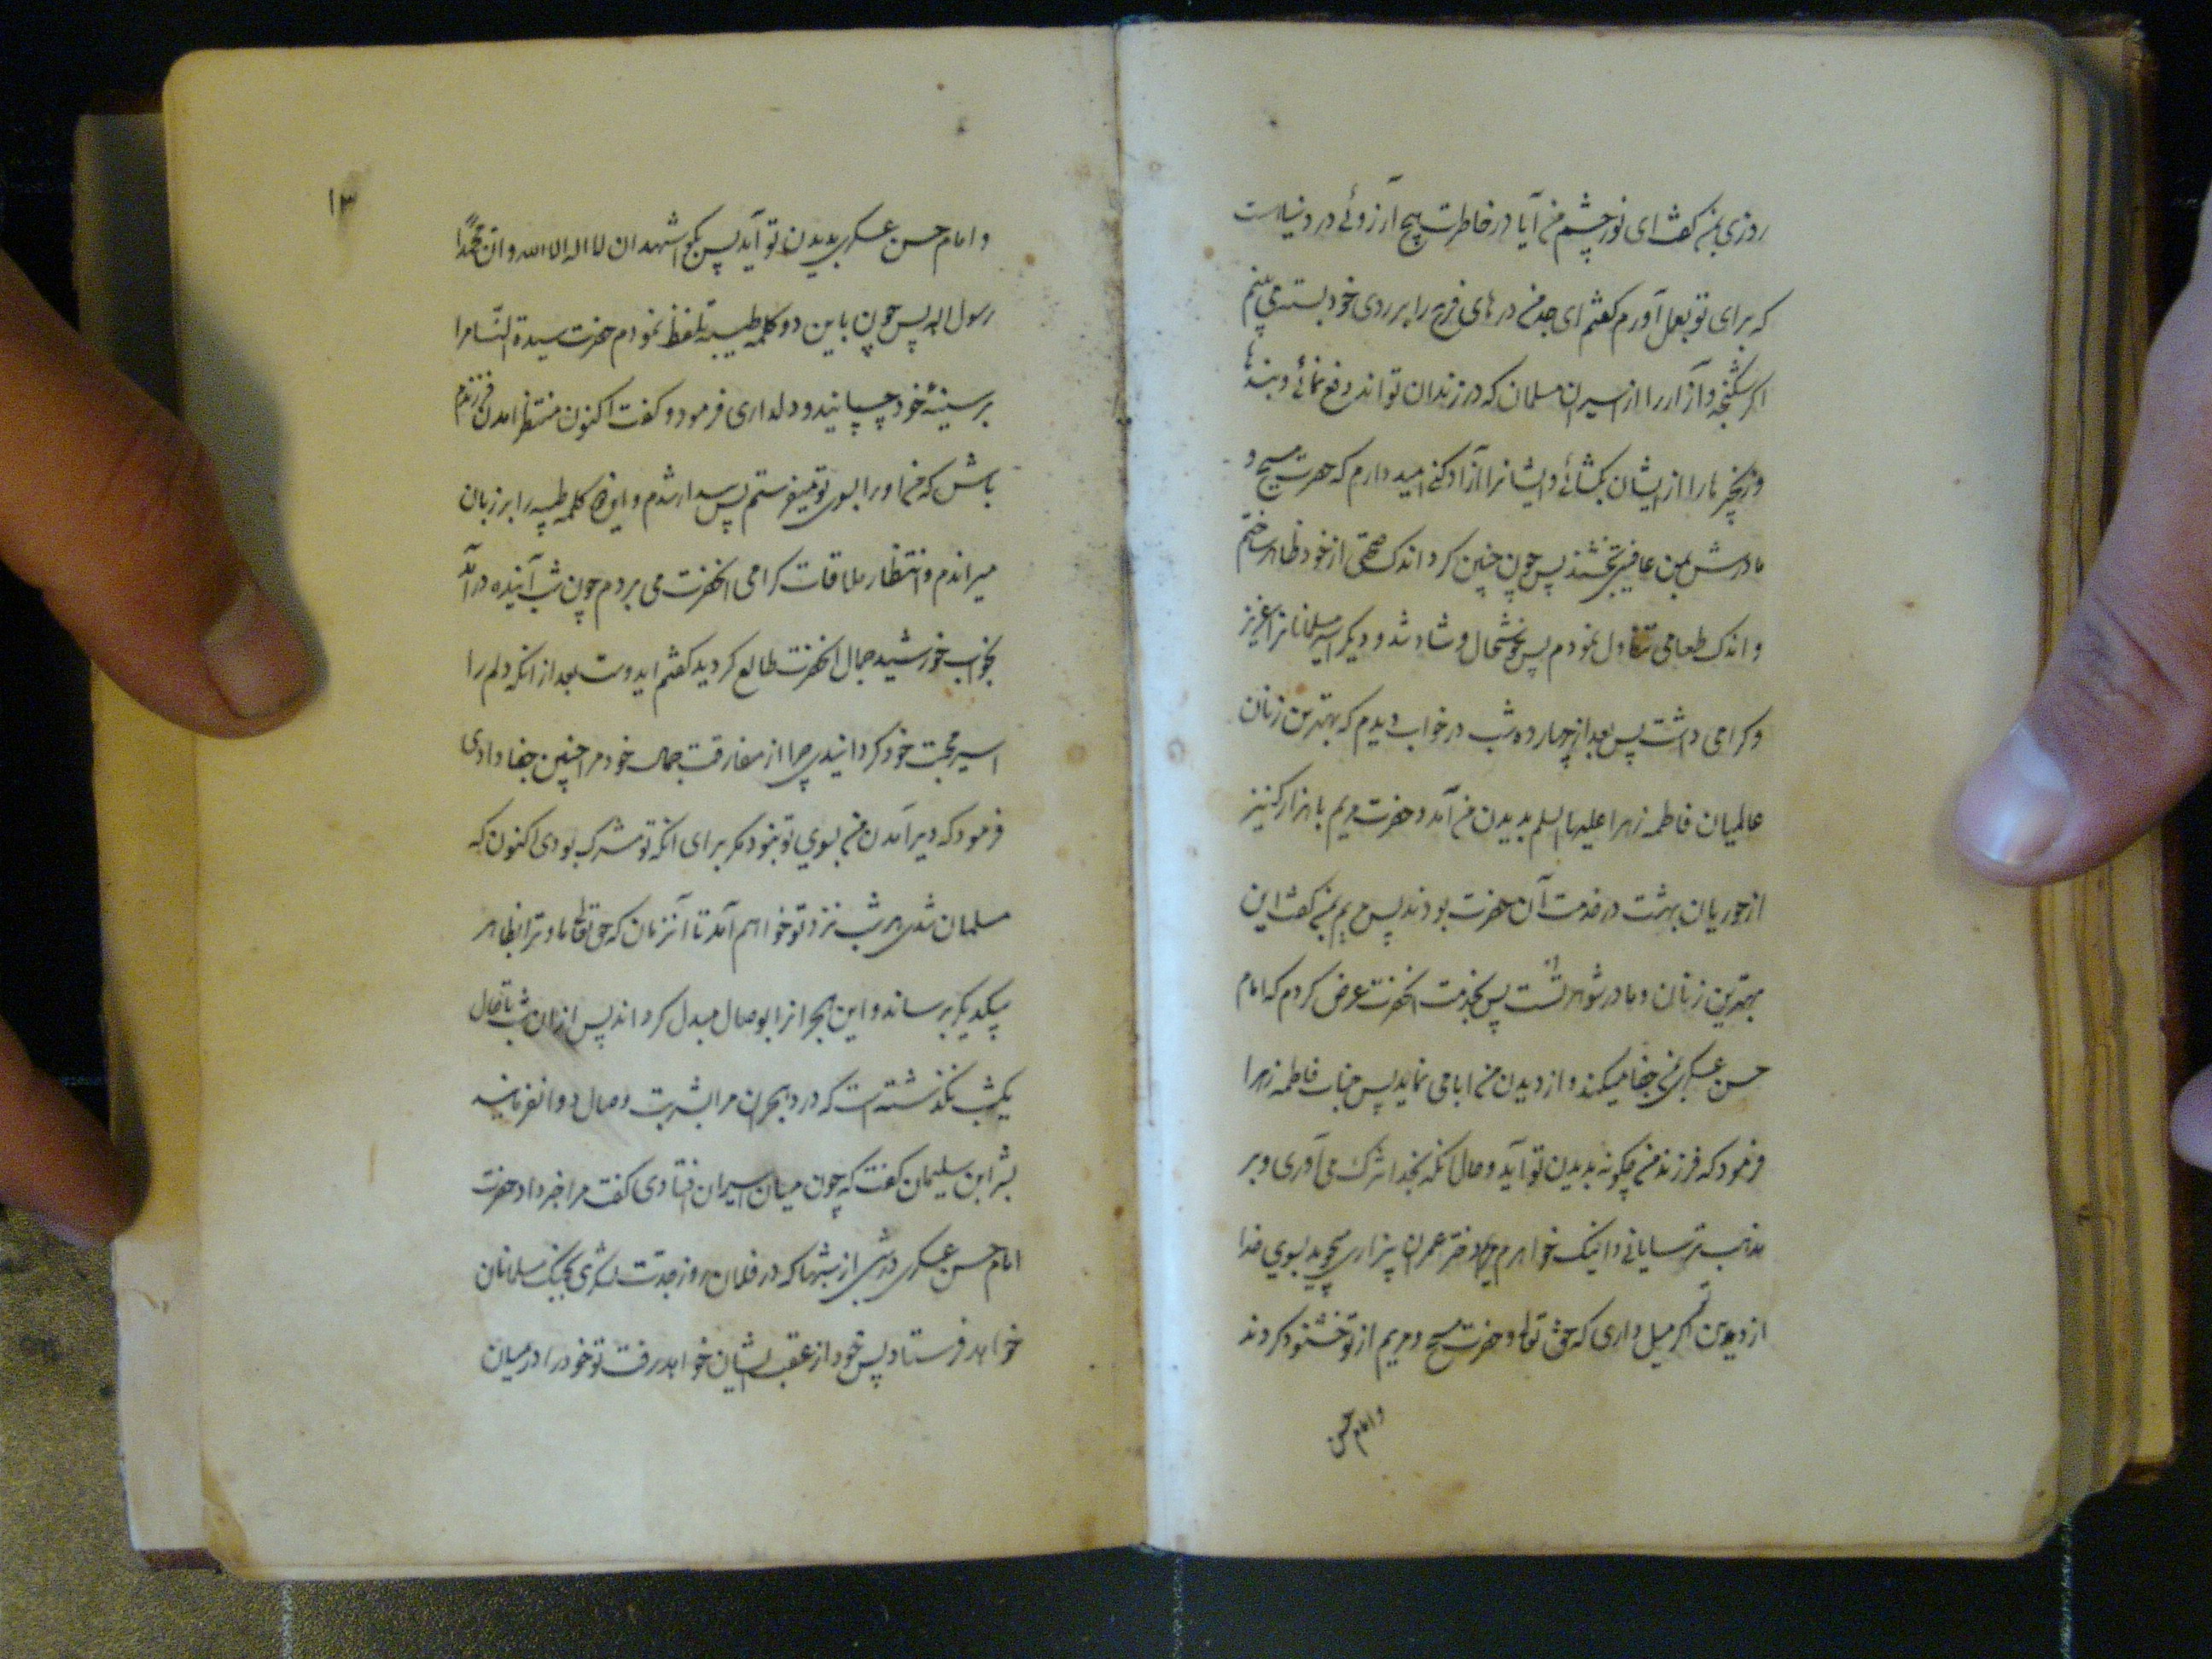 روزی بمن گفت ای نور چشم من آیا در خاطرت هیچ آرزوئے در دنیا هست
که برای تو بعمل آورم گفتم ای جد من درهای فرج را بر روی خود بسته می بینم
اگر شکنجه و آزار را از اسیران مسلمان که در زندان تواند دفع نمائے و بندها
و زنجیرها را از ایشان بکشائے و ایشانرا آزاد کنے امید دارم که حضرت مسیح و
مادرش بمن عافیتی بخشند پس چون چنین کرد اندک صحتی از خود ظاهر ساختم
و اندک طعامی تناول نمودم پس خوشحال و شاد شد و دیگر اسیر مسلمانانرا عزیز
و گرامی داشت پس بعد از چهارده شب در خواب دیدم که بهترین زنان
عالمیان فاطمه زهرا علیها السلم بدیدن من آمد و حضرت مریم با هزار کنیز
از حوریان بهشت در خدمت آن حضرت بودند پس مریم بمن گفت این
بهترین زنان و مادر شوهر تست پس بخدمت آنحضرت عرض کردم که امام
حسن عسکری بمن جفا میکند و از دیدن من ابا می نماید پس جناب فاطمه زهرا
فرمود که فرزند من چگونه بدیدن تو آید و حال آنکه بخدا شرک می آوری و بر
مذهب ترسایانی و اینک خواهرم مریم دختر عمران بیزاری میجوید بسوی خدا
از دین تو اگر میل داری که حق تعالی و حضرت مسیح و مریم از تو خشنود گردند
و امام حسن
۱۳
و امام حسن عسکری بدیدن تو آید پس بگو اشهد ان لا اله الا الله و ان محمداً
رسول الله پس چون باین دو کلمه طیبه تلفظ نمودم حضرت سیدة النسا مرا
بر سینۀ خود چسپانید و دلداری فرمود و گفت اکنون منتظر آمدن فرزندم
باش که من او را بسوی تو میفرستم پس بیدار شدم و این دو کلمه طیبه را بر زبان
میراندم و انتظار ملاقات گرامی آنحضرت می بردم چون شب آینده در آمد
بخواب خورشید جمال آنحضرت طالع گردید گفتم ایدوست بعد از آنکه دلم را
اسیر محبت خود گردانیدی چرا از مفارقت جمال خود مرا چنین جفا دادی
فرمود که دیر آمدن من بسوی تو نبود مگر برای آنکه تو مشرک بودی اکنون که
مسلمان شدی هر شب نزد تو خواهم آمد تا آنزمان که حق تعالی ما و ترا بظاهر
بیکدیگر برساند و این هجرانرا بوصال مبدل گرداند پس از ان شب تا حال
یکشب نگذشته است که درد هجران مرا بشربت وصال دوا نفرماید
بشر ابن سلیمان گفت که چون میان اسیران افتادی گفت مرا خبر داد حضرت
امام حسن عسکری در شبی از شبها که در فلان روز جدت لشکری بجنگ مسلمانان
خواهد فرستاد پس خود از عقب ایشان خواهد رفت تو خود را در میان